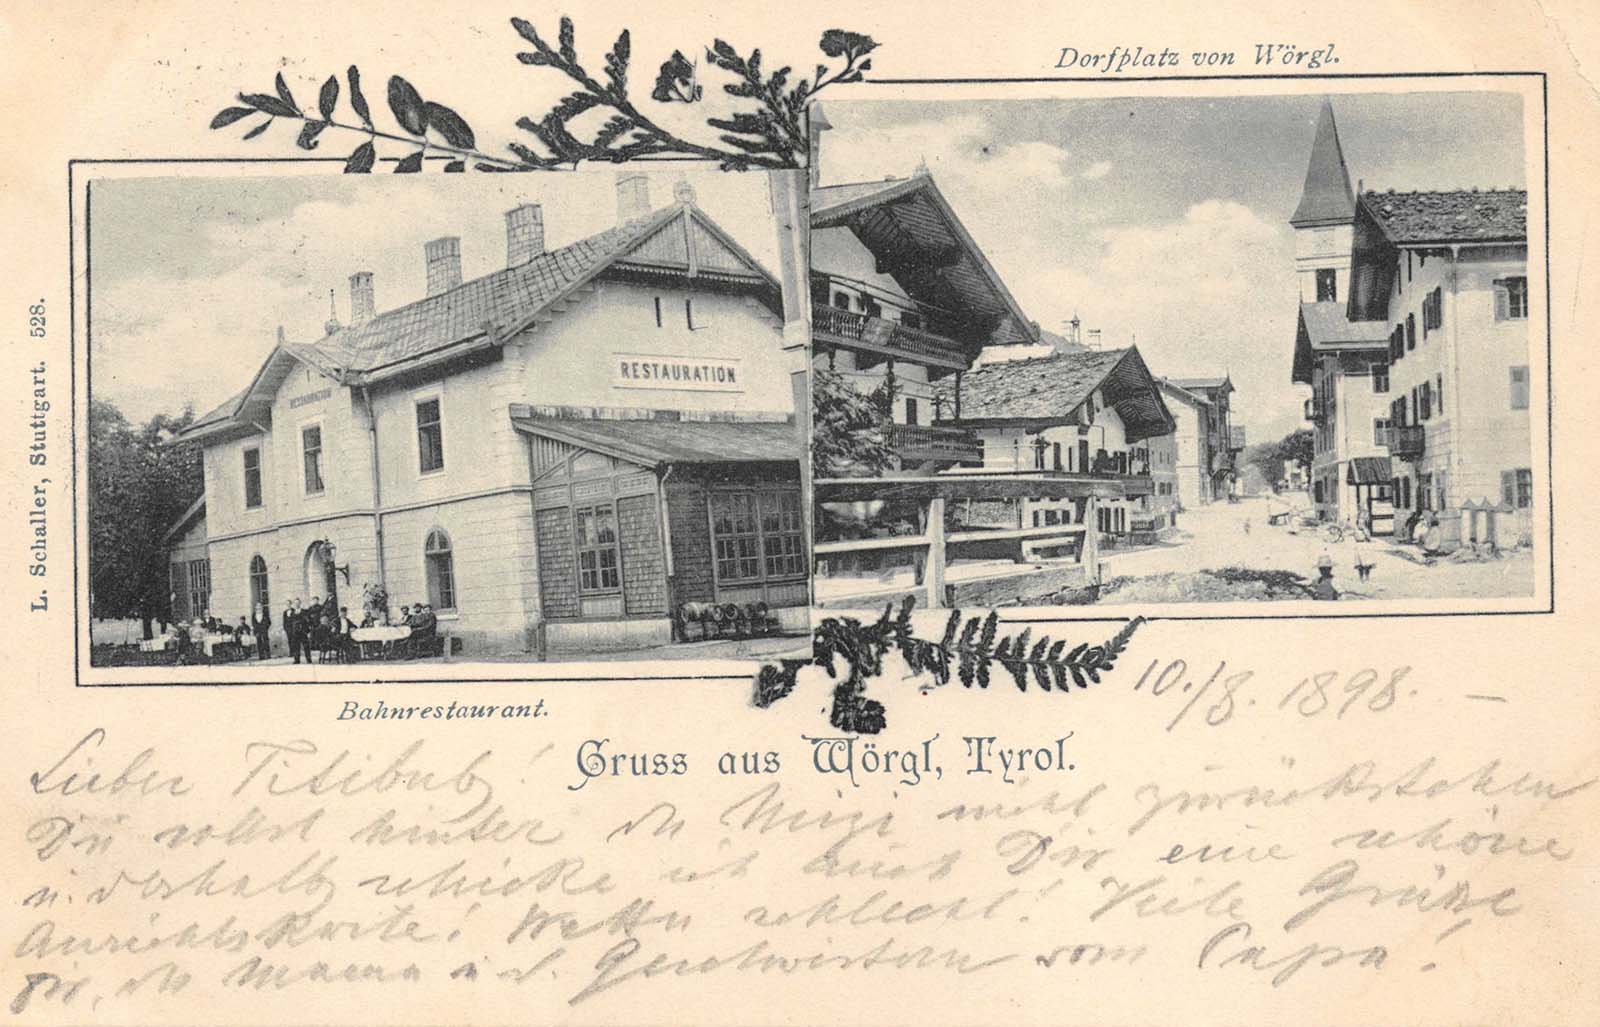 Dorfplatz von Wörgl.
RESTAURATION
RESTAURATION
L. Schaller, Stuttgart. 528.
Bahnrestaurant.
10./8. 1898. —
Gruss aus Wörgl, Tyrol.
Lieber Titibub!
Du sollst hinter der Mizi nicht zurückstehen
u. deshalb schicke ich auch Dir eine schöne
Ansichtskarte! Wetter schlecht! Viele Grüße
Dir, der Mama u. d. Geschwistern vom Papa!